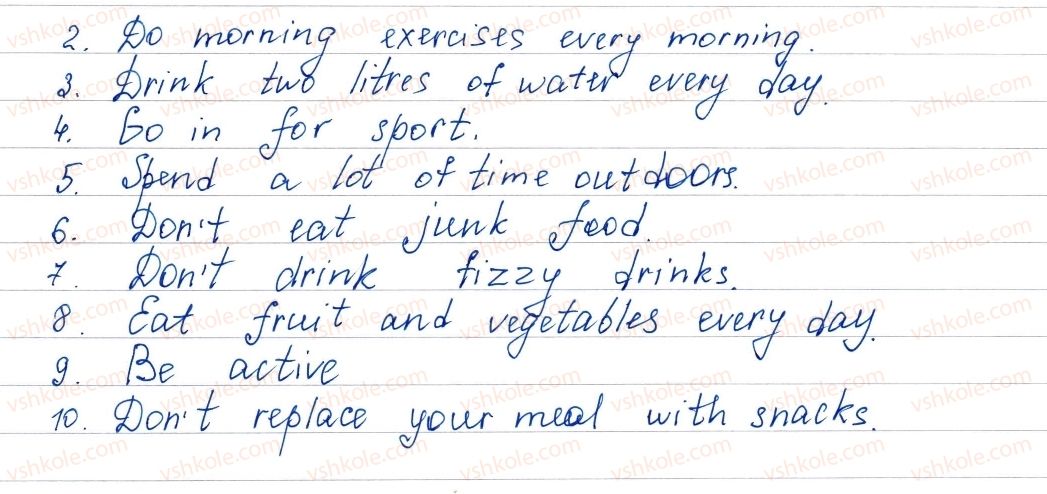 2. Do morning exercises every morning.
3. Drink two litres of water every day.
4. Go in for sport.
5. Spend a lot of time outdoors.
6. Don't eat junk food.
7. Don't drink fizzy drinks.
8. Eat fruit and vegetables every day.
9. Be active
10. Don't replace your meal with snacks.